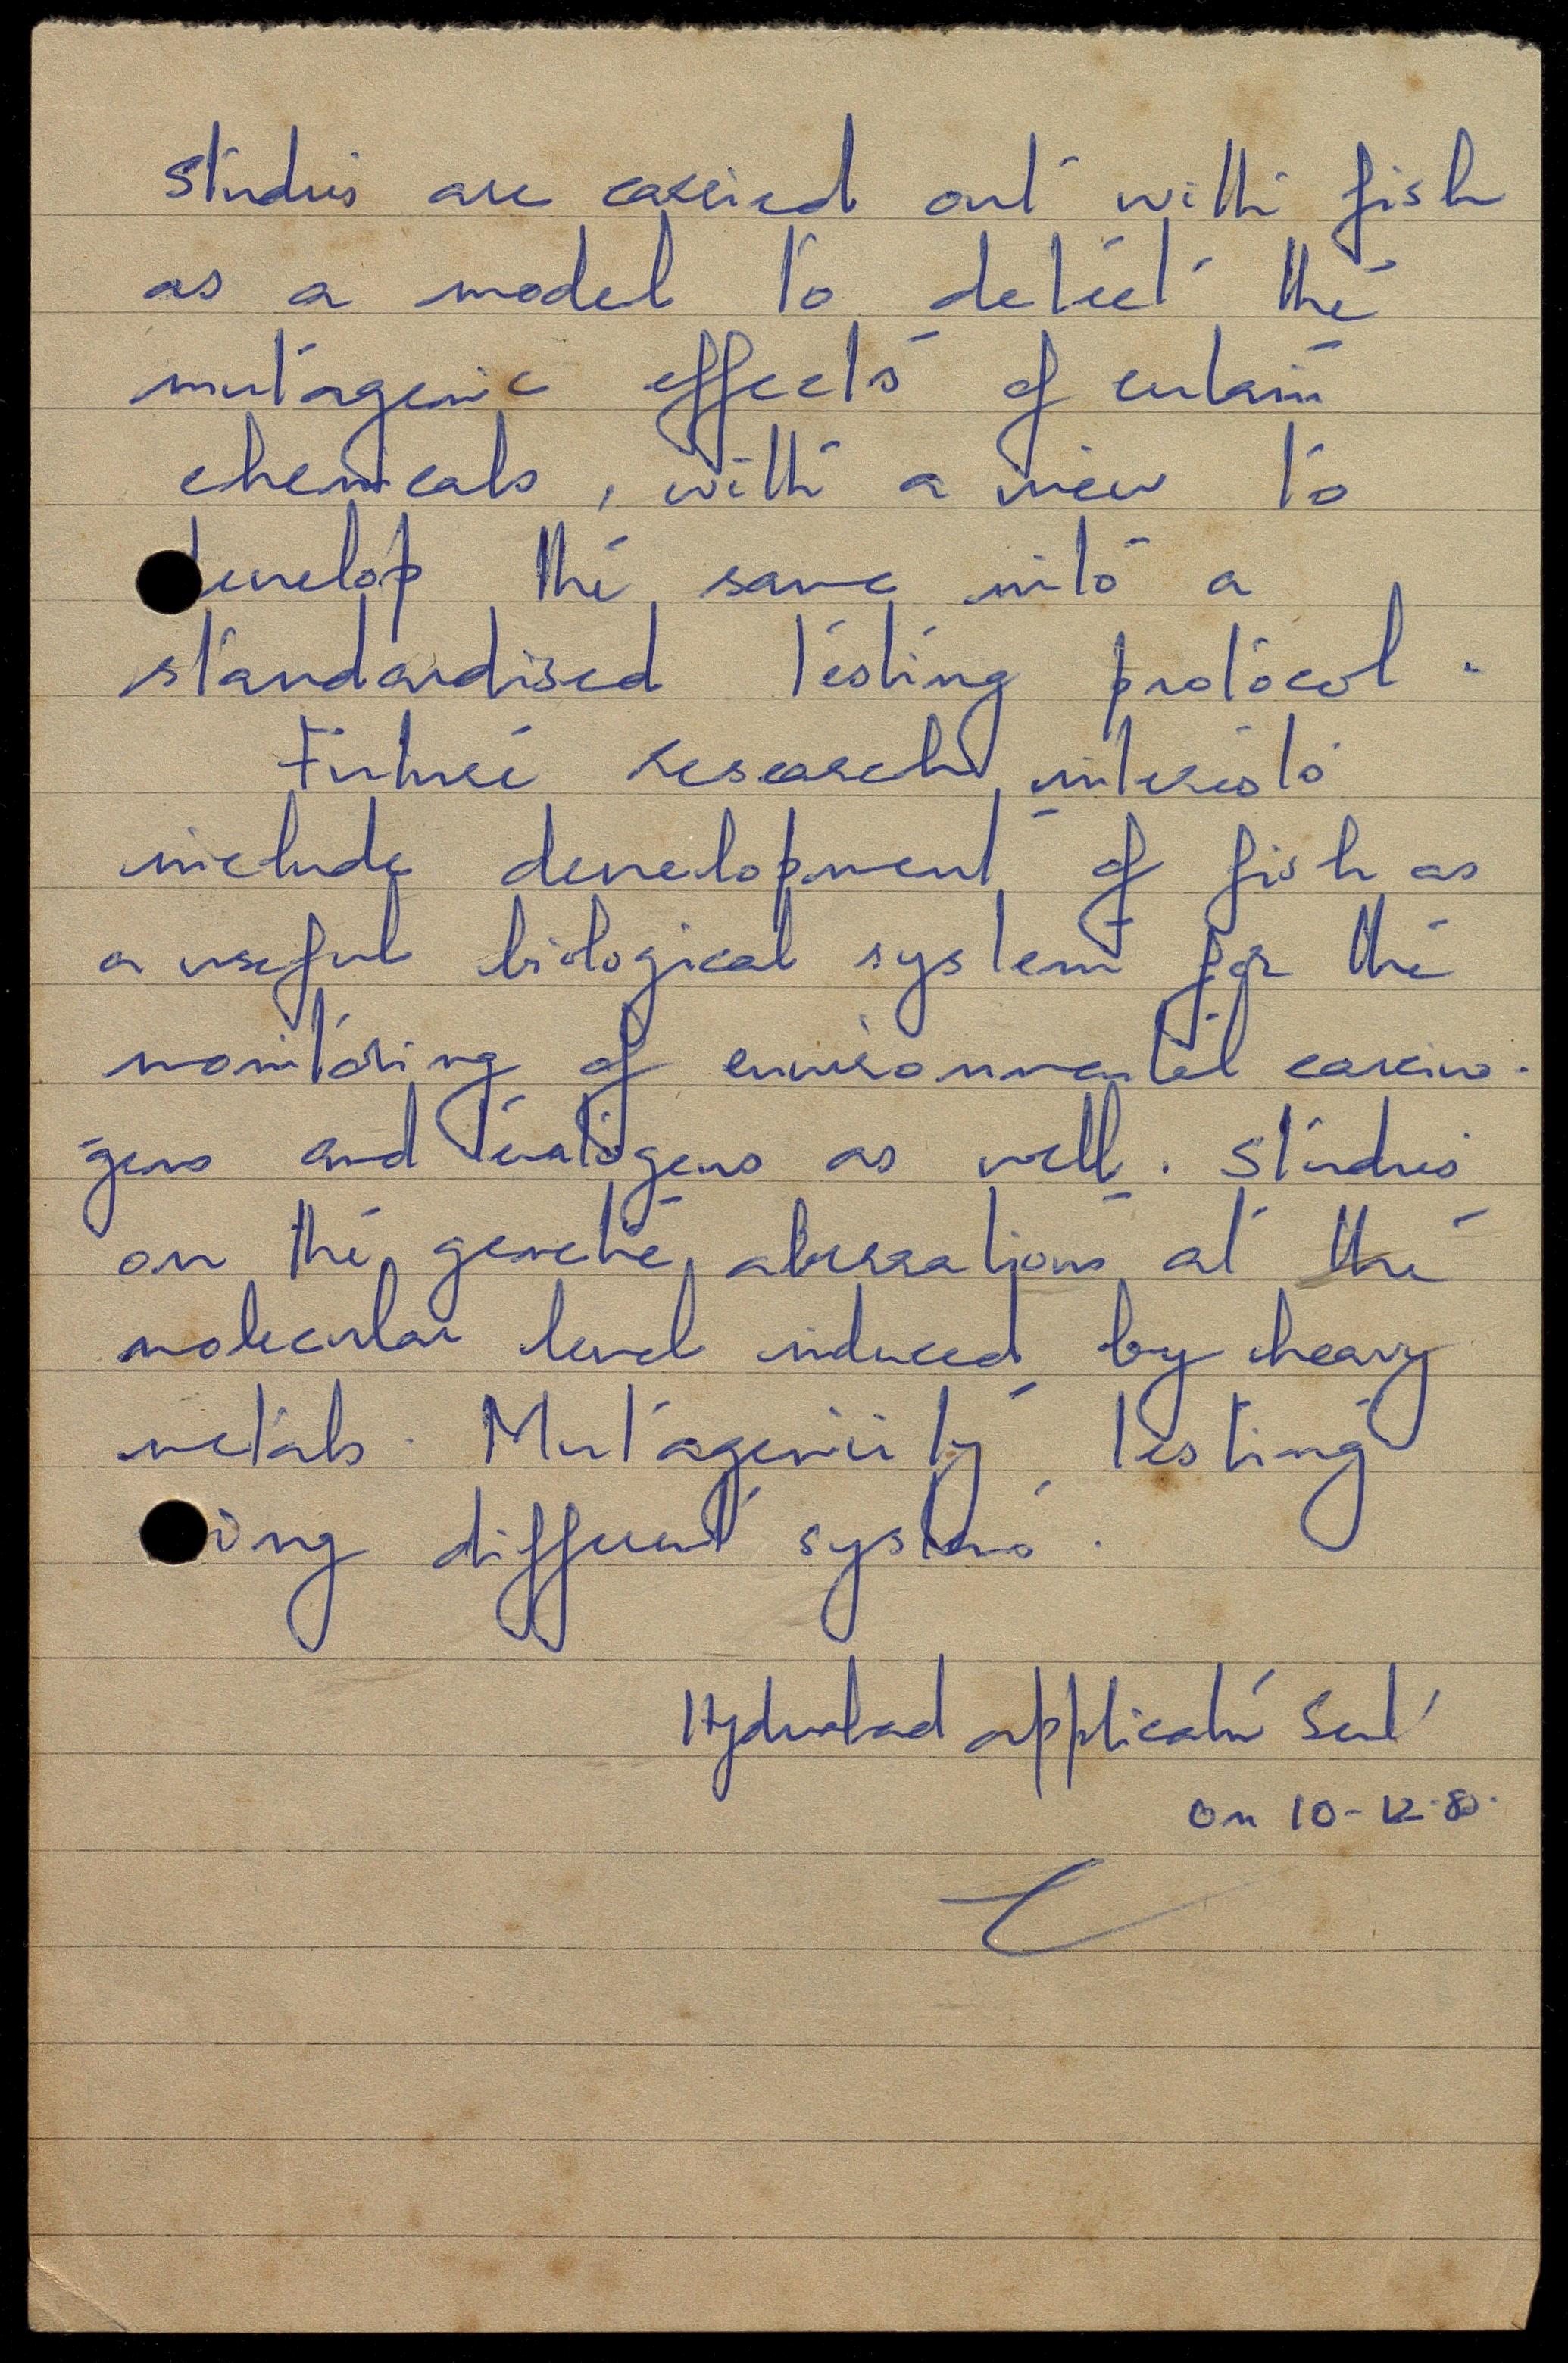 Studies are carried out with fish
as a model to detect the
mutagenic effects of certain
chemicals, with a view to
develop the same into a
standardised testing protocol.
Future research interests
include development of fish as
a useful biological system for the
monitoring of environmental carcino-
gens and teratogens as well. Studies
on the genetic aberrations at the
molecular level induced by heavy
metals. Mutagenicity testing
using different systems.
Hyderabad application sent
on 10-12-80.